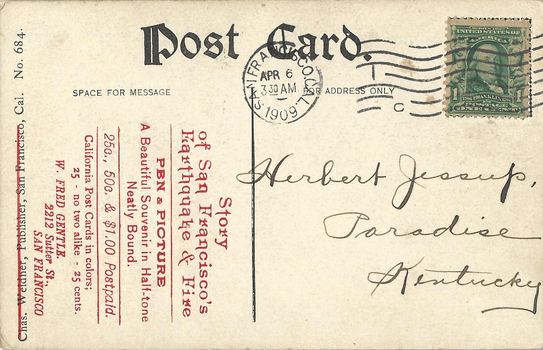 Post Card.
SPACE FOR MESSAGE
FOR ADDRESS ONLY
SAN FRANCISCO, CAL.
APR 6
3 30 AM
1909
1
C
Herbert Jessup,
Paradise
Kentucky
Story
of San Francisco's
Earthquake & Fire
PEN & PICTURE
A Beautiful Souvenir in Half-tone
Neatly Bound.
25c., 50c. & $1.00 Postpaid.
California Post Cards in colors;
25 - no two alike - 25 cents.
W. FRED GENTLE.
2212 Sutter St.,
SAN FRANCISCO
Chas. Weidner, Publisher, San Francisco, Cal. No. 684.